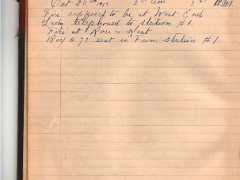 Oct 30th
Fire supposed to be at West End
Lady telephoned to station #1.
Fire at Rose n Kent
Box # 77 sent in from station #1.